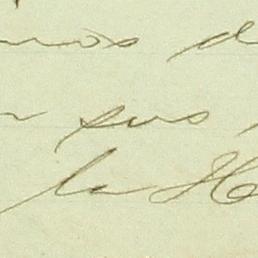 nos d
sus
la H